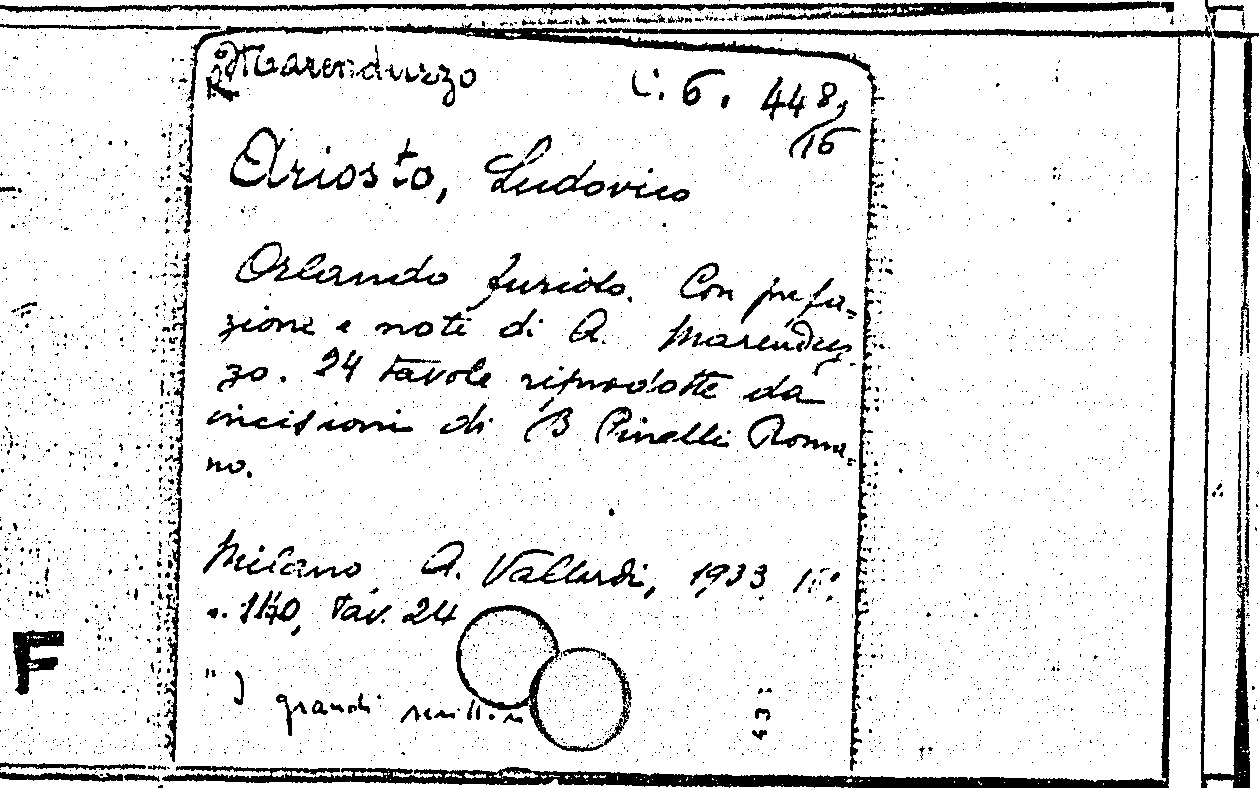 Marenduzzo
C. 6. 448,
16
Ariosto, Ludovico
Orlando furioso. Con prefa-
zione e note di A. Marenduz-
zo. 24 tavole riprodotte da
incisioni di B Pinelli Roma-
no.
Milano A. Vallardi, 1933
1140, tav. 24
" I grandi
F